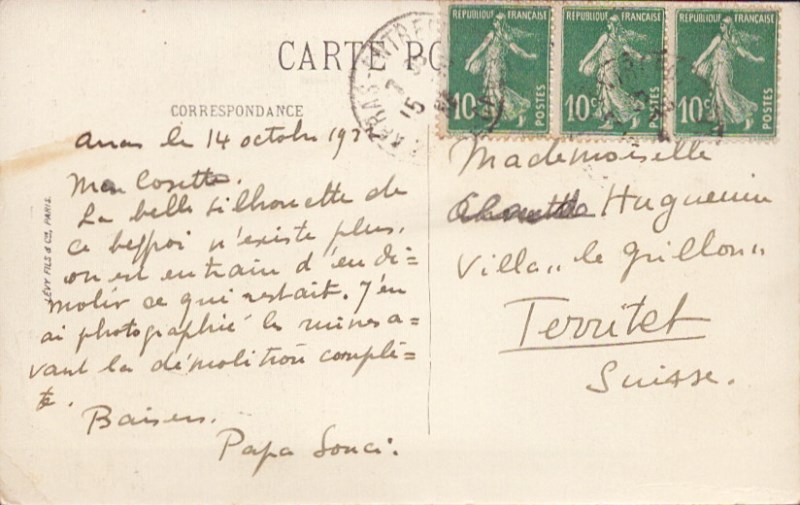 CARTE PO
RÉPUBLIQUE FRANÇAISE
10c
POSTES
RÉPUBLIQUE FRANÇAISE
10c
POSTES
RÉPUBLIQUE FRANÇAISE
10c
POSTES
ARRAS-ENTREP
15
CORRESPONDANCE
Arras le 14 octobre 192
Ma Cosette.
La belle silhouette de
ce beffroi n'existe plus,
on est en train d'en dé=
molir ce qui restait. J'en
ai photographié les ruines a=
vant la démolition complè=
te.
Baisers.
Papa Souci.
LÉVY FILS & Cie, PARIS.
Mademoiselle
Huguenin
Villa „le Grillon"
Territet
Suisse.